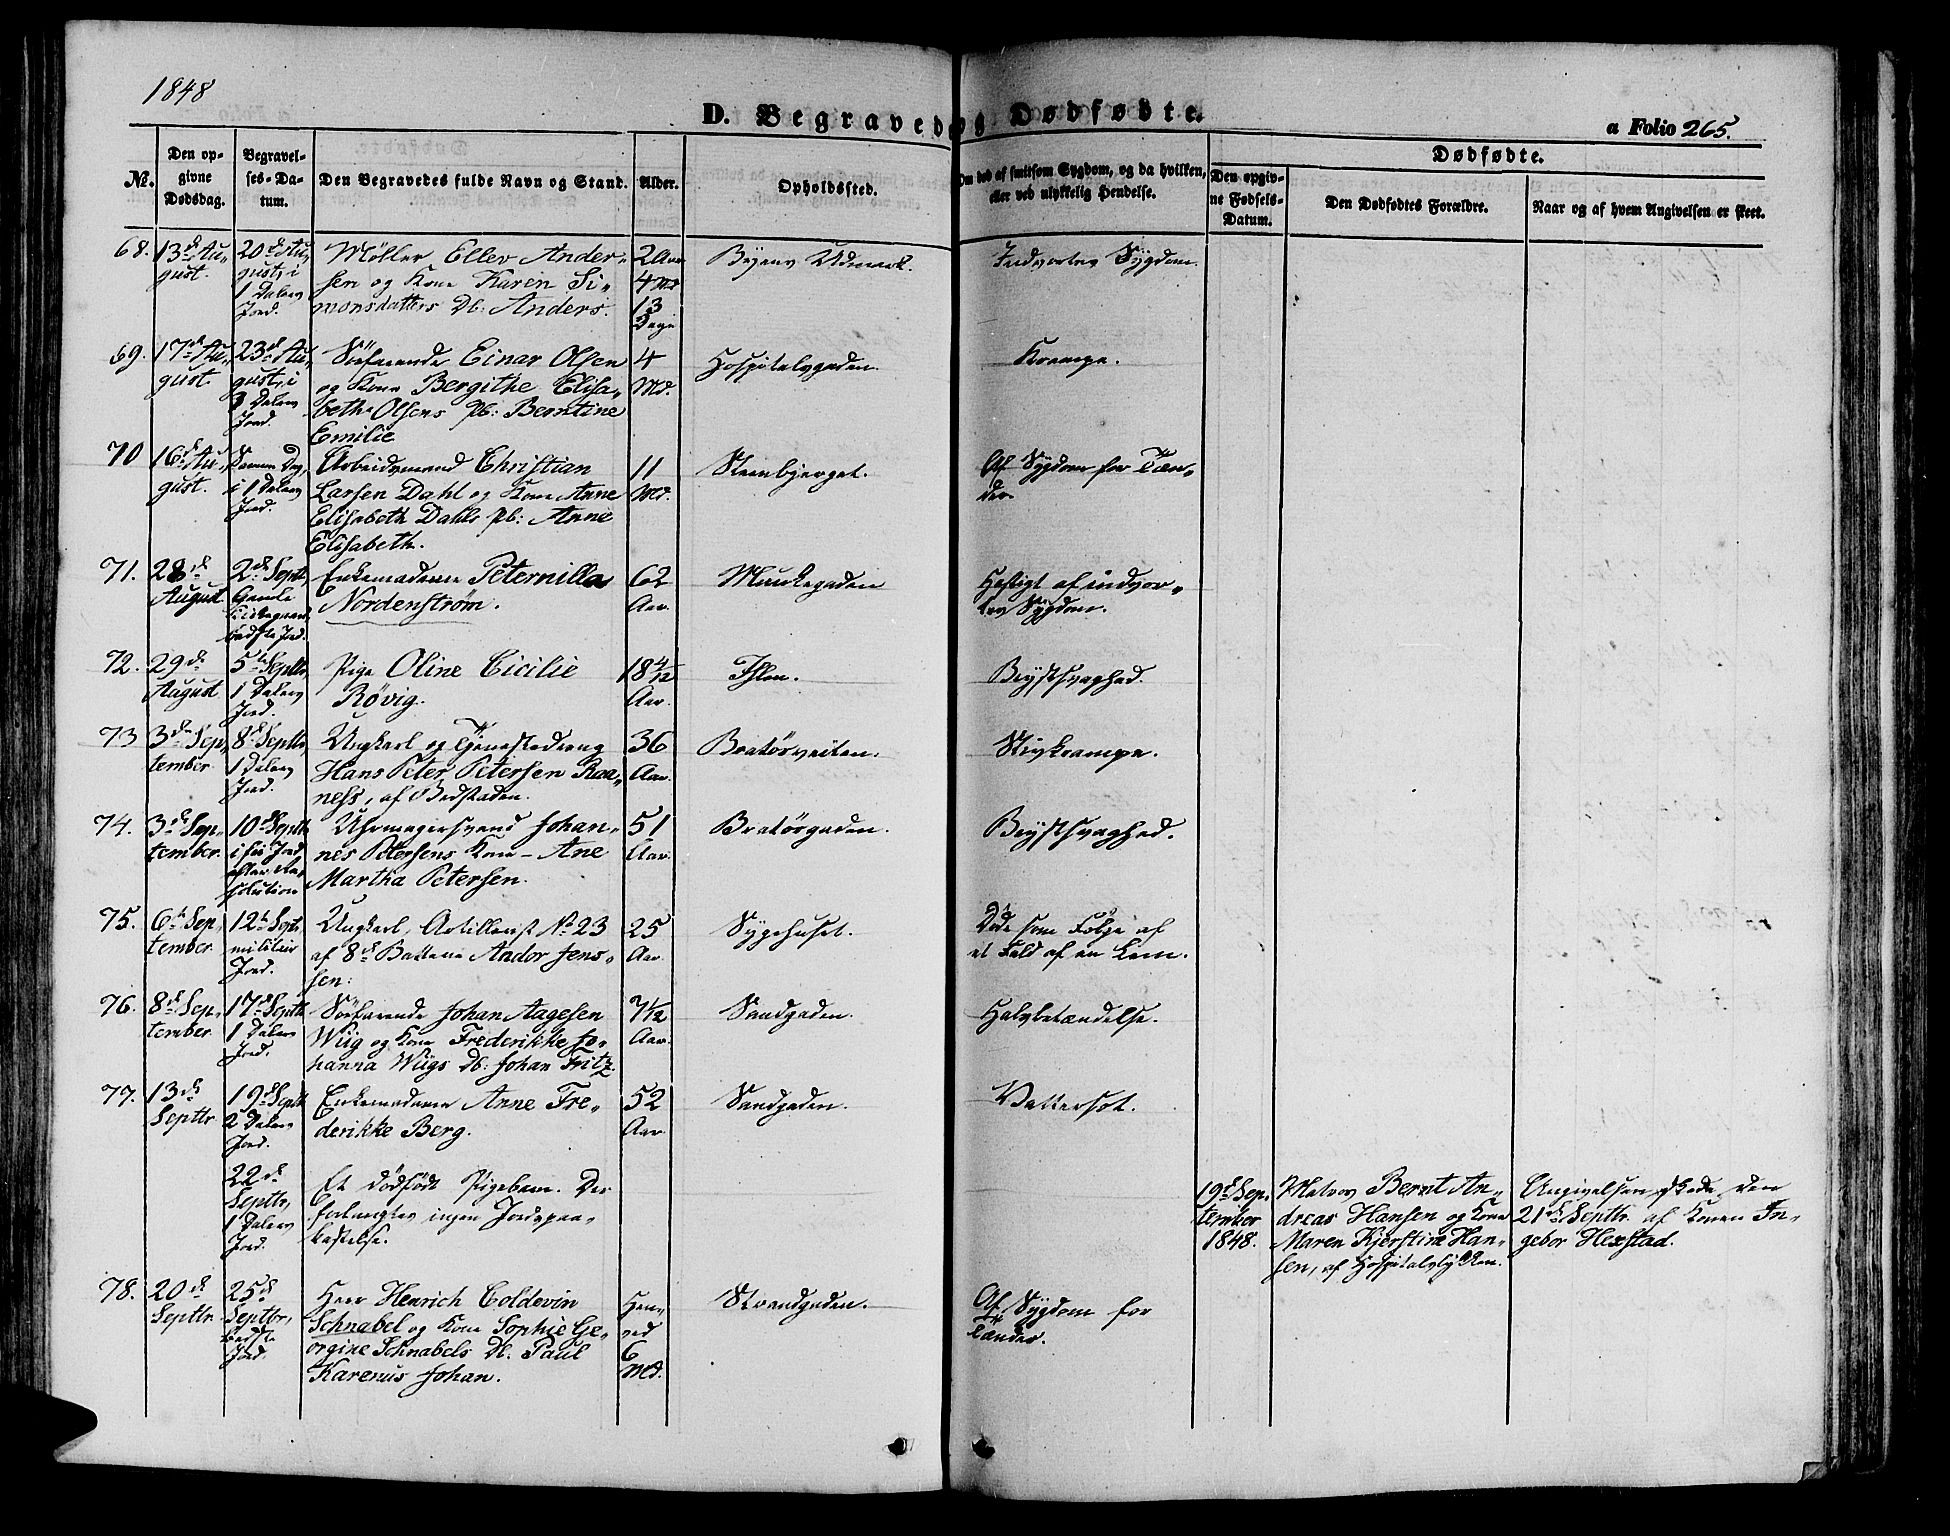 1848
D. Begravede og Dødfødte.
a Folio 265.
Dødfødte.
No.
Den op-
givne
Dødsdag.
Begravel-
ses-Da-
tum.
Den Begravedes fulde Navn og Stand.
Alder.
Opholdssted.
Om død af smitsom Sygdom, og da hvilken,
eller ved ulykkelig Hendelse.
Den opgiv-
ne Fødsels-
Datum.
Den Dødfødtes Forældre.
Naar og af hvem Angivelsen er skeet.
68.
13de Au-
gust.
20de Au-
gust, i
1 Dalers
Jord.
Møller Ellev Ander-
sen og Kone Karen Si-
monsdatters Db: Anders.
2 Aar
4 Md
13
Dage
Byens Udmark.
Indvortes Sygdom.
69.
17de Au-
gust.
23de Au-
gust, i
3 Dalers
Jord.
Søfarende Einar Olsen
og Kone Bergithe Elisa-
betha Olsens Pb: Berntine
Emilie
4
Md.
Hospitalsgaden.
Krampe.
70
16de Au-
gust.
Samme Dag,
i 1 Dalers
Jord.
Arbeidsmand Christian
Larsen Dahl og Kone Anne
Elisabeth Dahls Pb: Anne
Elisabeth.
11
Md.
Steenbjerget.
Af Sygdom for Tæn-
der.
71.
28de
August
2de Septbr,
Gamle
bedste Jord.
Enkemadame Peternilla
Nordenstrøm.
62
Aar.
Munkegaden
Heftigt af indvor-
tes Sygdom.
72.
29de
August
5te Septbr,
1 Dalers
Jord.
Pige Oline Cicilie
Røvig.
18 4/12
Aar.
Ihlen.
Brystsvaghed.
73
3die Sep-
tember.
8de Septbr,
1 Dalers
Jord.
Ungkarl og Tjenestedreng
Hans Peter Petersen Raa-
ness, af Bedstaden.
36
Aar.
Bratørveiten.
Stivkrampe.
74.
3die Sep-
tember.
10de Septbr
i fri Jord
efter Re-
solution
Uhrmagersvend Johan-
nes Petersens Kone - Ane
Martha Petersen.
51
Aar.
Bratørgaden.
Brystsvaghed.
75.
6te Sep-
tember.
12te Septr,
militair
Jord.
Ungkarl, Artillerist No 23
af 8de Batterie Andor Jens-
sen:
25
Aar.
Sygehuset.
Døde som Følge af
et Fald af en Lem.
76.
8de Sep-
tember.
17de Septbr
1 Dalers
Jord.
Søefarende Johan Aagesen
Wiig og Kone Frederikke Jo-
hanna Wiigs Db: Johan Fritz.
7 1/12
Aar.
Sandgaden.
Halsbetændelse.
77.
13de
Septbr
19de Septbr
2 Dalers
Jord.
Enkemadame Anne Fre-
derikke Berg.
52
Aar.
Sandgaden.
Vattersot.
22de
Septbr,
1 Dalers
Jord.
Et dødfødt Pigebarn. Der
forlangtes ingen Jordspaa-
kastelse.
19de Sep-
tember
1848.
Matros Bernt An-
dreas Hansen og Kone
Maren Kjerstine Han-
sen, af Hospitalsløkken.
Angivelsen skede den
21de Septbr. af Konen In-
gebor Hexstad.
78.
20de
Septbr
25de
Septbr,
bedste
Jord.
Herr Henrich Coldevin
Schnabel og Kone Sophie Ge-
orgine Schnabels Db. Paul
Karenus Johan.
Hen-
ved
6
Md.
Strandgaden.
Af Sygdom for
Tænder.